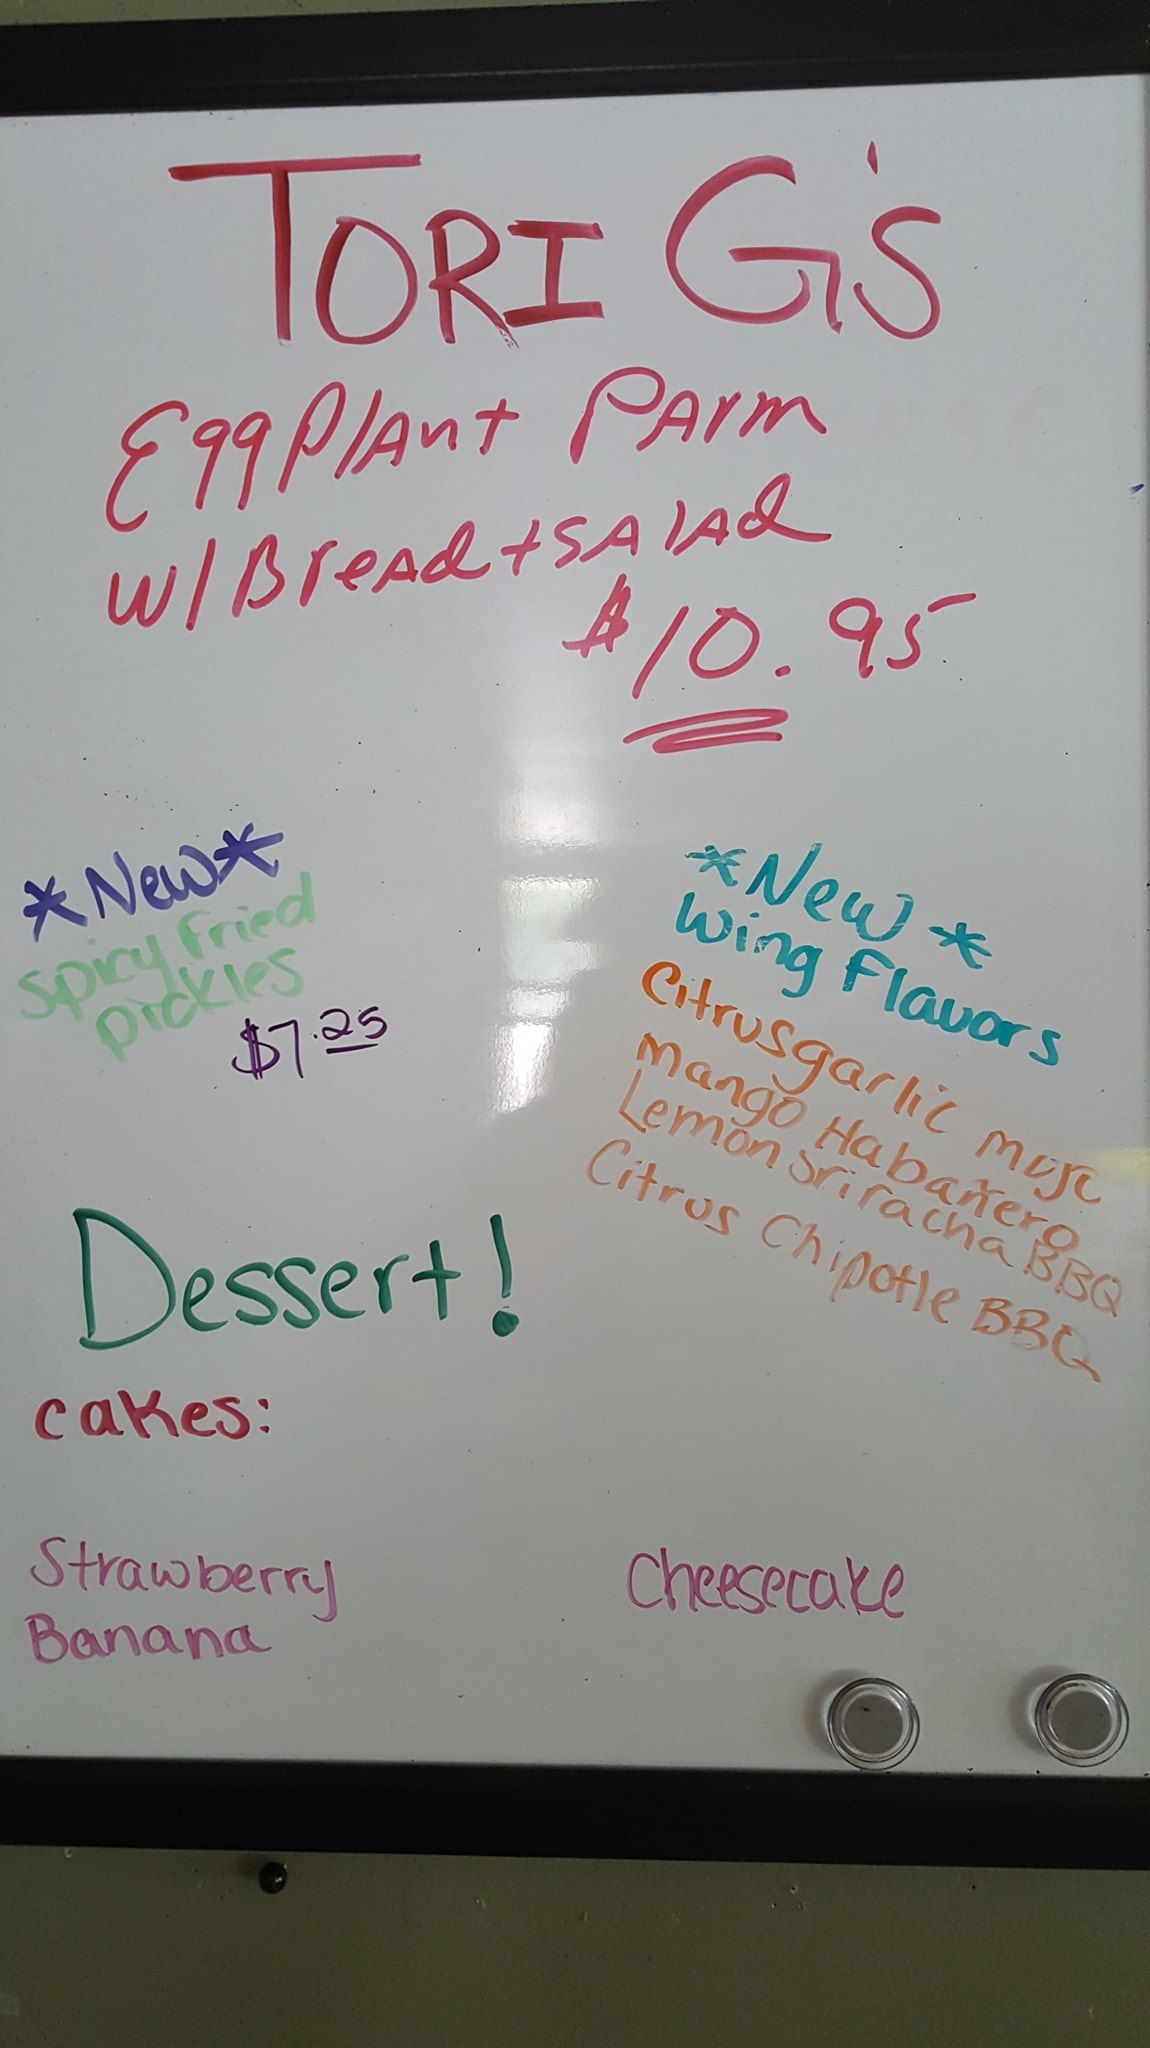 TORI G'S
EggPlAnt PArm
w/ BreAd + SAlAd
$10.95
*New*
Spicy Fried
pickles
$7.25
*New*
Wing Flavors
Citrus garlic mojo
Mango Habañero
Lemon Sriracha BBQ
Citrus Chipotle BBQ
Dessert!
cakes:
Strawberry
Banana
Cheesecake